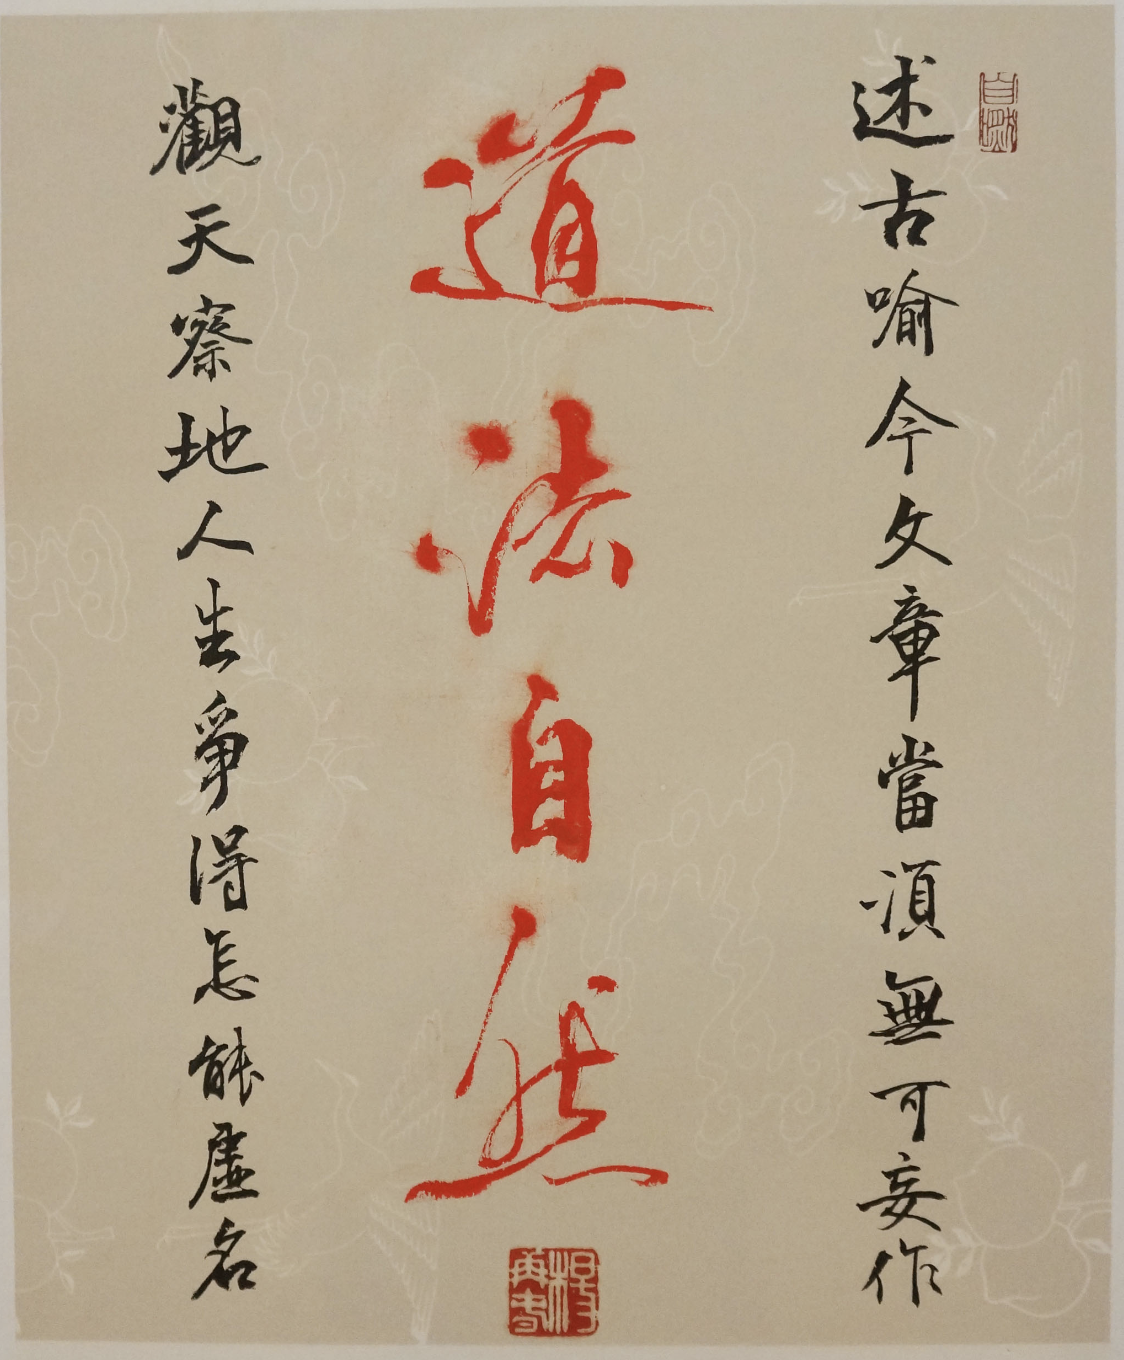 述古喻今文章當須無可妄作
道法自然
觀天察地人生爭得怎能虛名